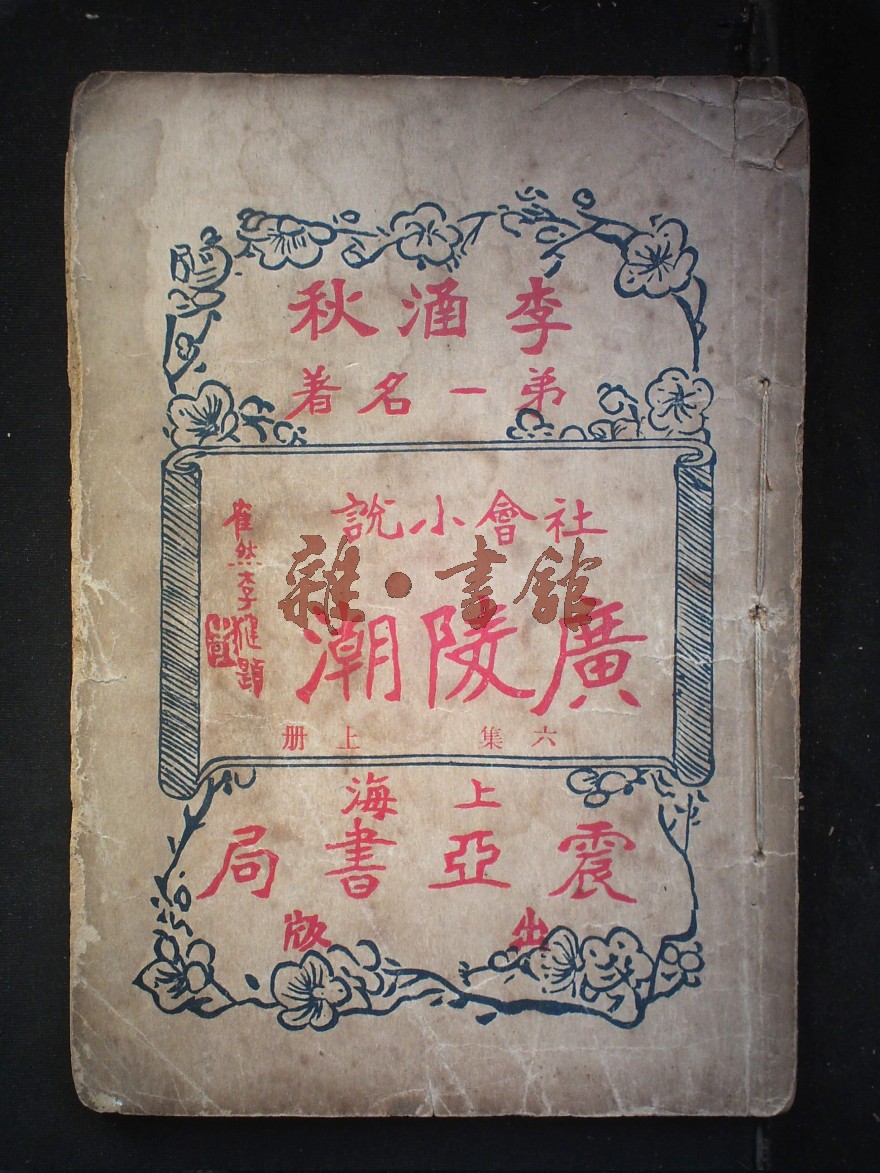 李涵秋
弟一名著
社會小說
廣陵潮
六集 上册
崔然李健題
上海
震亞書局
出版
雜·書館